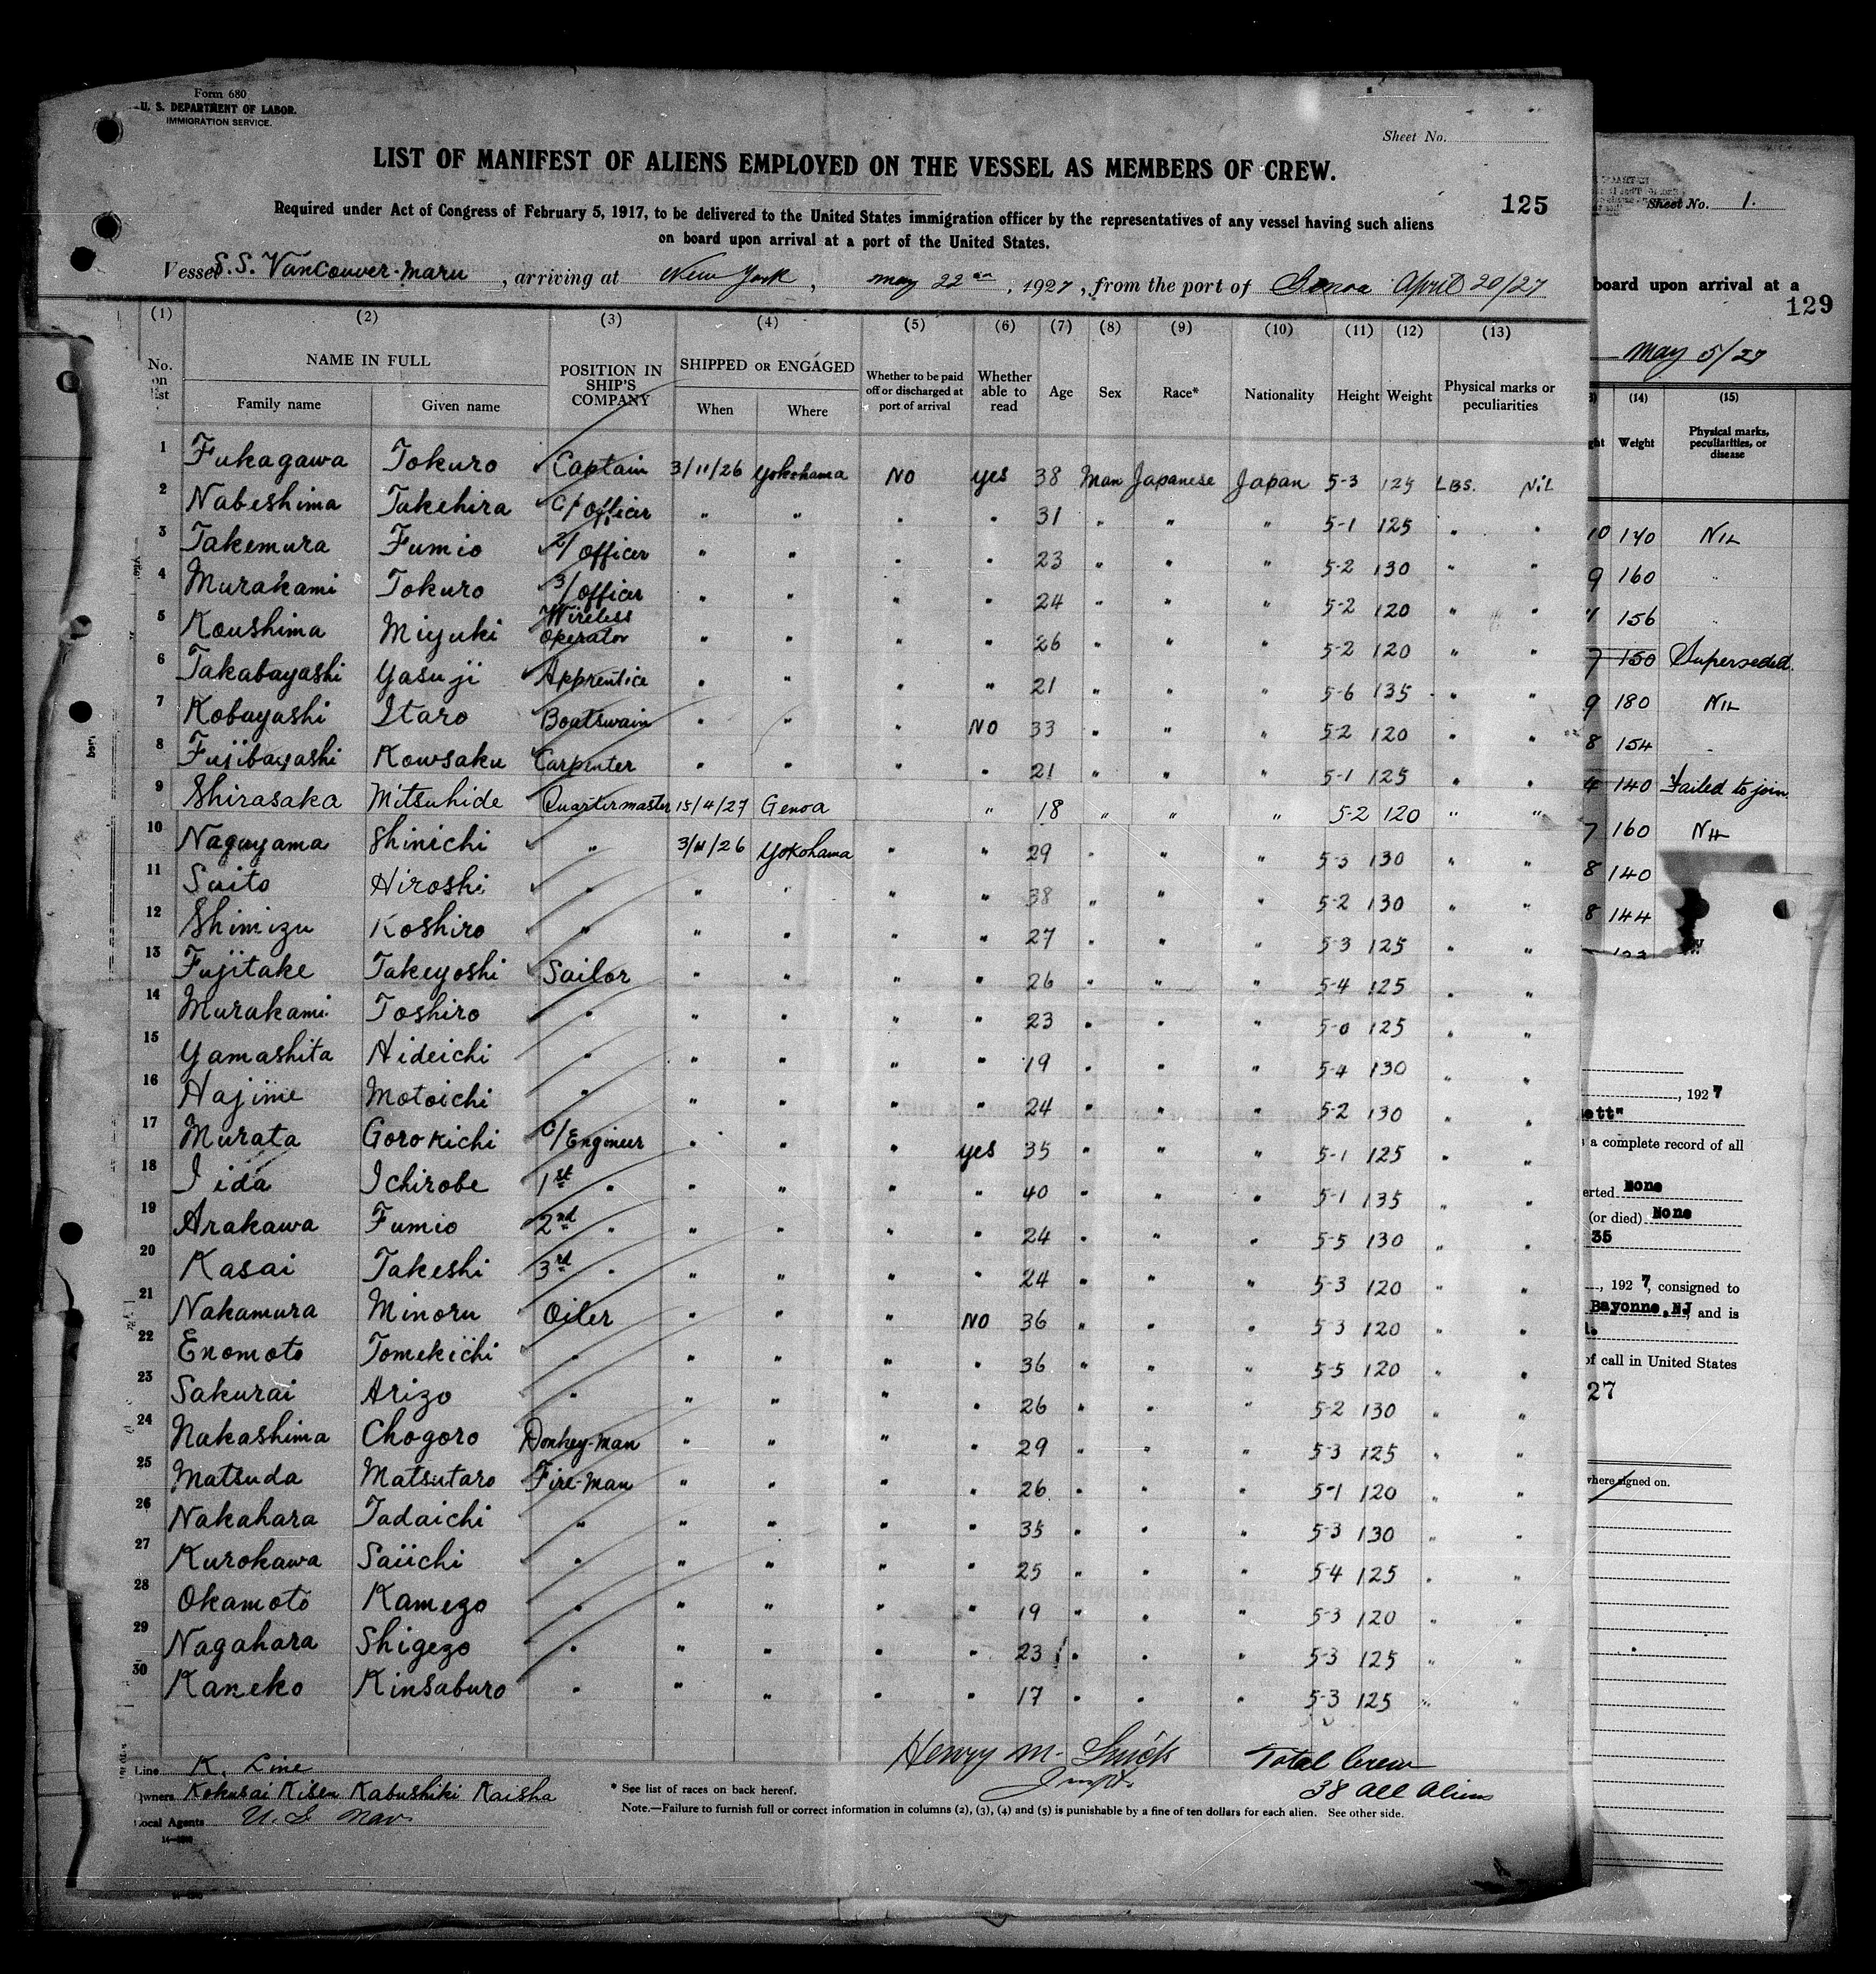 Form 680
U. S. DEPARTMENT OF LABOR.
IMMIGRATION SERVICE.
Sheet No.
LIST OF MANIFEST OF ALIENS EMPLOYED ON THE VESSEL AS MEMBERS OF CREW.
125
Required under Act of Congress of February 5, 1917, to be delivered to the United States immigration officer by the representatives of any vessel having such aliens
on board upon arrival at a port of the United States.
Vessel S.S. Vancouver-Maru, arriving at New York, May 22nd, 1927, from the port of Genoa April 20/27
(1) (2) (3) (4) (5) (6) (7) (8) (9) (10) (11) (12) (13)
No. on list NAME IN FULL Family name Given name POSITION IN SHIP'S COMPANY SHIPPED OR ENGAGED When Where Whether to be paid off or discharged at port of arrival Whether able to read Age Sex Race* Nationality Height Weight Physical marks or peculiarities
1 Fukagawa Tokuro Captain 3/11/26 Yokohama NO yes 38 Man Japanese Japan 5-3 125 LBS. Nil
2 Nabeshima Takehira C/Officer " " " " 31 " " " 5-1 125 " "
3 Takemura Fumio 2/Officer " " " " 23 " " " 5-2 130 " "
4 Murakami Tokuro 3/Officer " " " " 24 " " " 5-2 120 " "
5 Koushima Miyuki Wireless Operator " " " " 26 " " " 5-2 120 " "
6 Takabayashi Yasuji Apprentice " " " " 21 " " " 5-6 135 " "
7 Kobayashi Itaro Boatswain " " " NO 33 " " " 5-2 120 " "
8 Fujibayashi Kowsaku Carpenter " " " " 21 " " " 5-1 125 " "
9 Shirasaka Mitsuhide Quartermaster 15/4/27 Genoa " 18 " " " 5-2 120 " "
10 Nagayama Shinichi " 3/11/26 Yokohama " " 29 " " " 5-3 130 " "
11 Saito Hiroshi " " " " " 38 " " " 5-2 130 " "
12 Shimizu Koshiro " " " " " 27 " " " 5-3 125 " "
13 Fujitake Takeyoshi Sailor " " " " 26 " " " 5-4 125 " "
14 Murakami Toshiro " " " " " 23 " " " 5-0 125 " "
15 Yamashita Hideichi " " " " " 19 " " " 5-4 130 " "
16 Hajime Motoichi " " " " " 24 " " " 5-2 130 " "
17 Murata Gorokichi C/Engineer " " " yes 35 " " " 5-1 125 " "
18 Iida Ichirobe 1st " " " " " 40 " " " 5-1 135 " "
19 Arakawa Fumio 2nd " " " " " 24 " " " 5-5 130 " "
20 Kasai Takeshi 3rd " " " " " 24 " " " 5-3 120 " "
21 Nakamura Minoru Oiler " " " NO 36 " " " 5-3 120 " "
22 Enomoto Tomekichi " " " " " 36 " " " 5-5 120 " "
23 Sakurai Arizo " " " " " 26 " " " 5-2 130 " "
24 Nakashima Chogoro Donkey-man " " " " 29 " " " 5-3 125 " "
25 Matsuda Matsutaro Fire-man " " " " 26 " " " 5-1 120 " "
26 Nakahara Tadaichi " " " " " 35 " " " 5-3 130 " "
27 Kurokawa Saiichi " " " " " 25 " " " 5-4 125 " "
28 Okamoto Kamezo " " " " " 19 " " " 5-3 120 " "
29 Nagahara Shigezo " " " " " 23 " " " 5-3 125 " "
30 Kaneko Kinsaburo " " " " " 17 " " " 5-3 125 " "
Line K. Line
Owners Kokusai Kisen Kabushiki Kaisha
Local Agents U.S Nav
* See list of races on back hereof.
Note.—Failure to furnish full or correct information in columns (2), (3), (4) and (5) is punishable by a fine of ten dollars for each alien. See other side.
Henry M.
Total Crew
38 all Aliens
Sheet No. 1.
board upon arrival at a
129
May 5/27
(14) (15)
Weight Physical marks, peculiarities, or disease
10 140 Nil
9 160 "
156 "
7 150 Superseded
9 180 Nil
8 154
4 140 Failed to join
7 160 Nil
8 140
8 144
, 1927
ett"
a complete record of all
erted None
(or died) None
35
, 1927, consigned to
Bayonne, NJ, and is
of call in United States
27
where signed on.